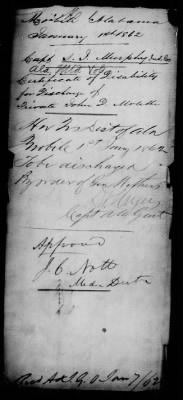 Mobile Alabama
January 1st 1862
Capt S. I. Murphy
Certificate of Disability
for Discharge of
Private John D. Molett
Hd Qrs Dist of Ala
Mobile 1st Jany 1862
To be discharged
By order of Gen Withers
Capt
Approved
J. C. Nott
Med Dirtr
Recd Adt G. O Jan 7/62